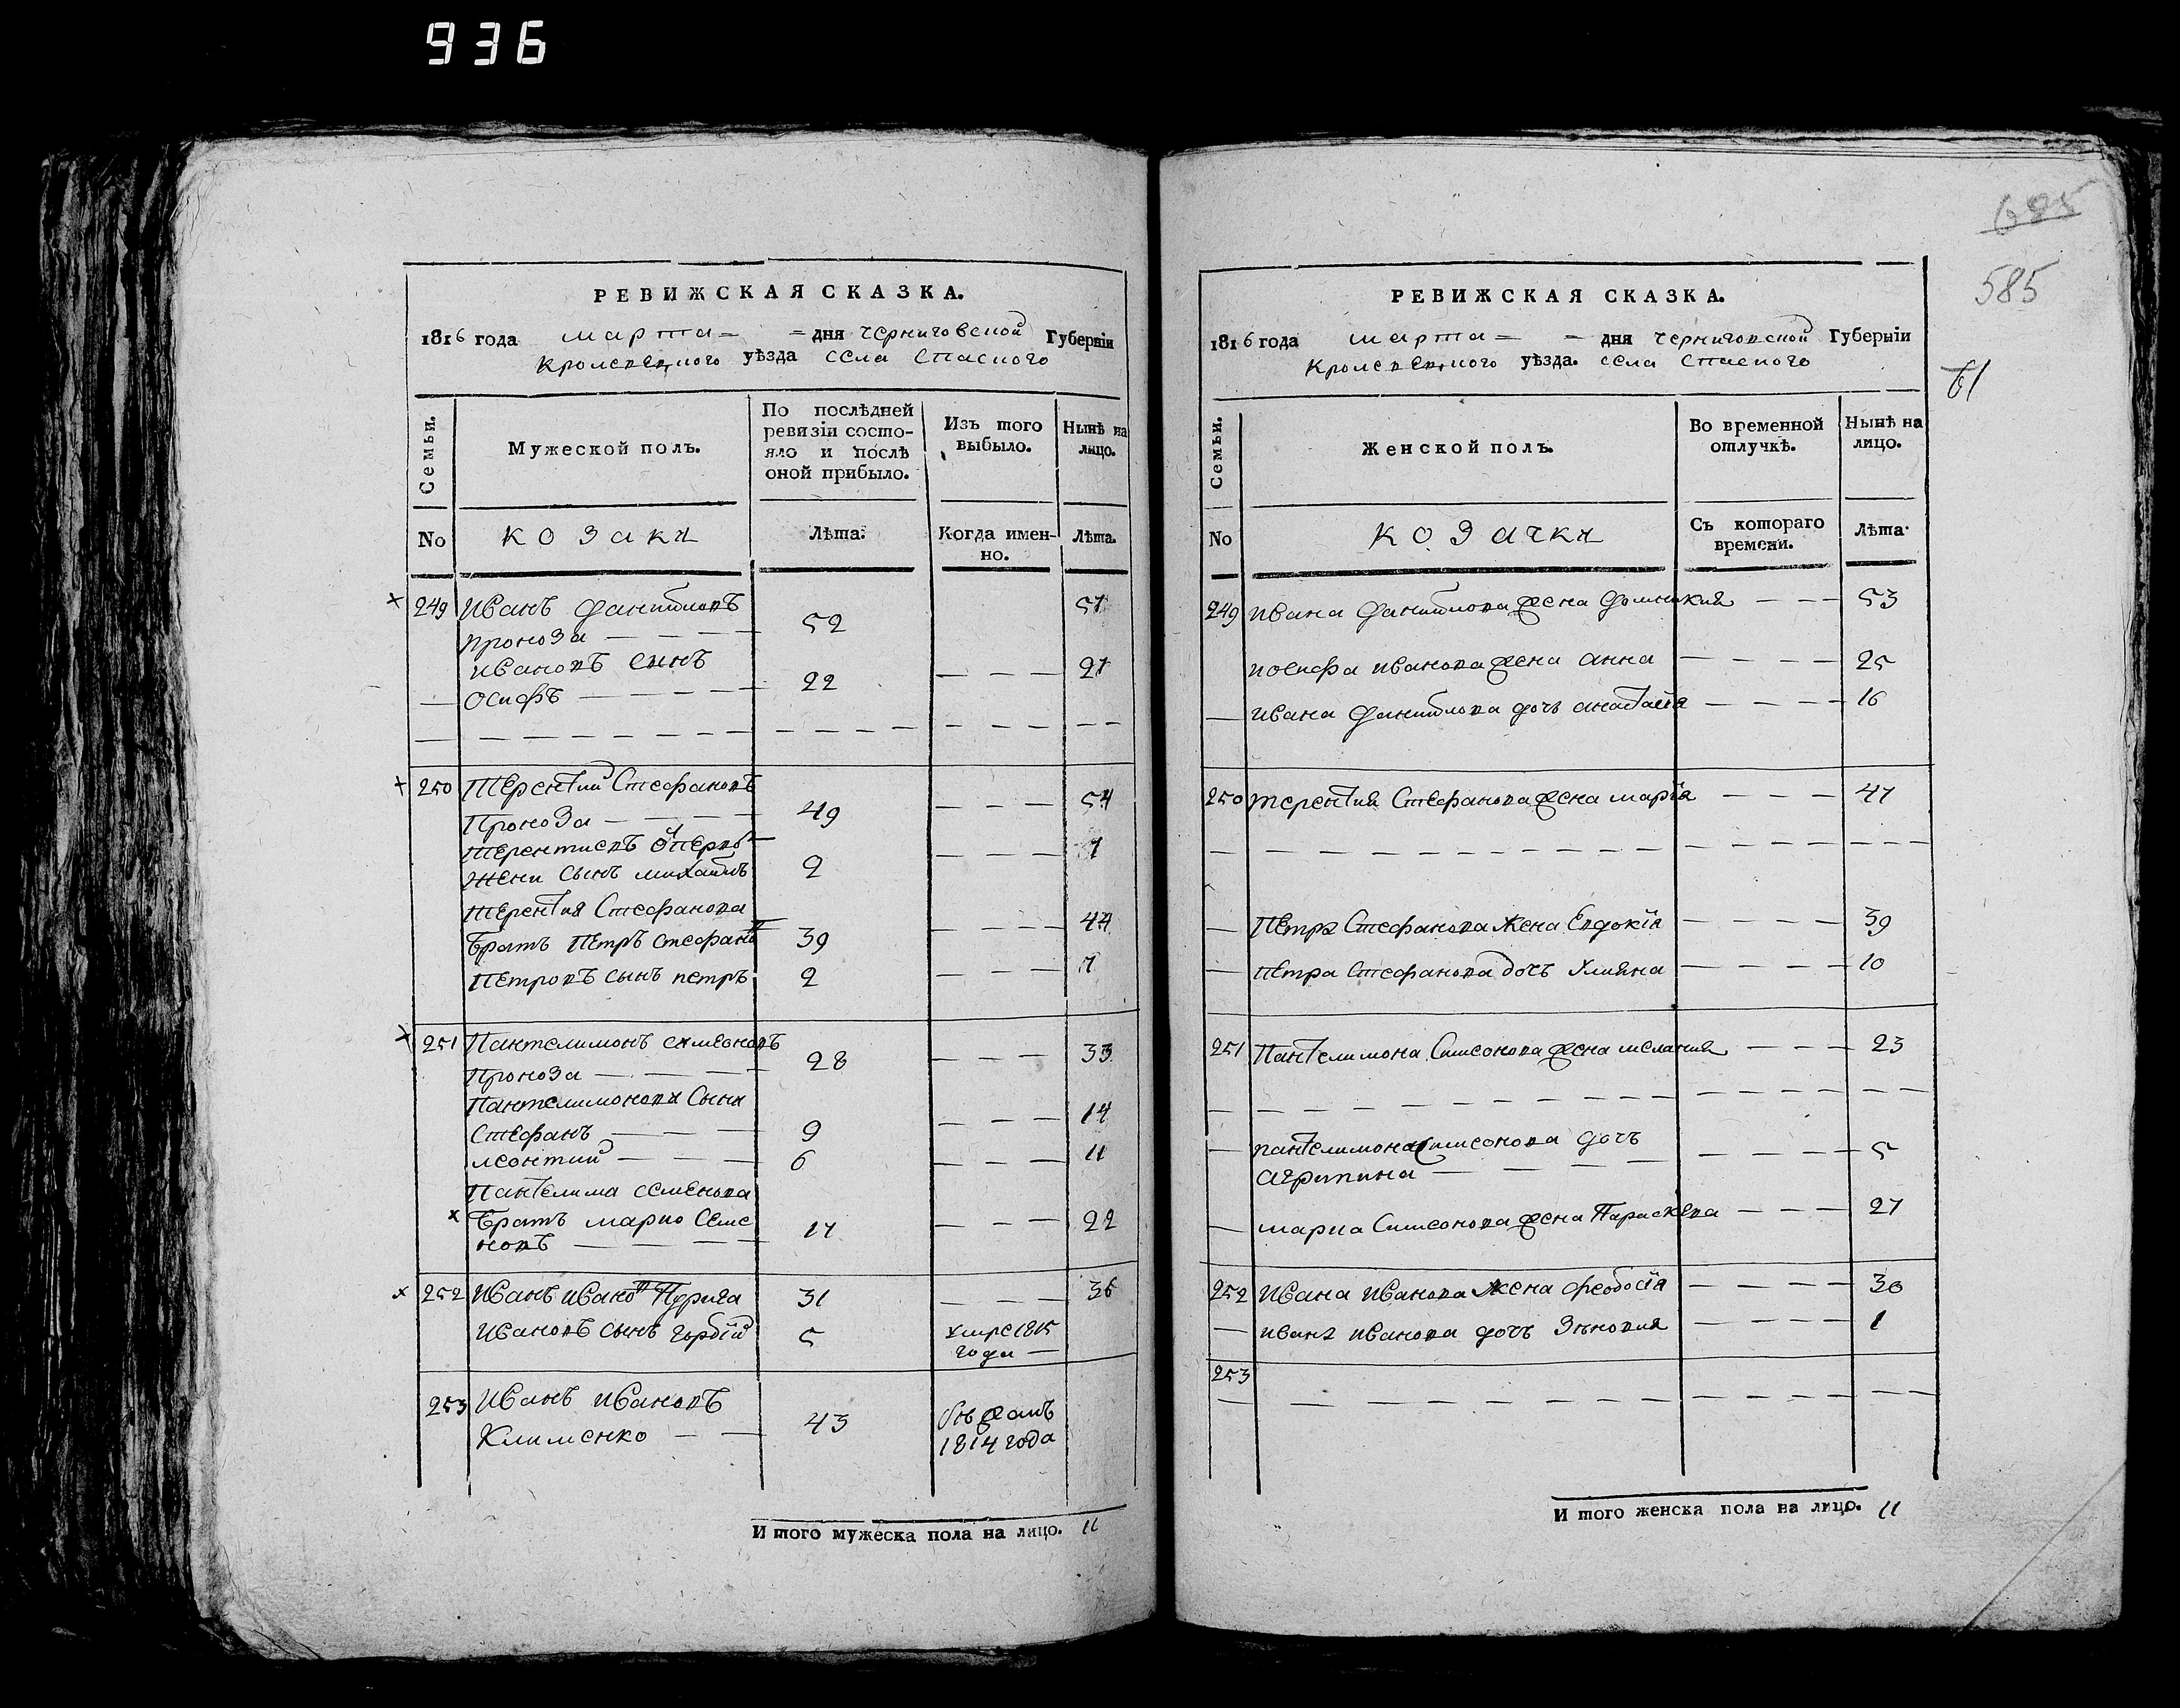 936
695
585
61
РЕВИЖСКАЯ СКАЗКА.
1816 года марта = = дня черниговской Губерніи
Кролевецкого уѣзда села Спаского
Семьи.
Мужеской полъ.
По послѣдней ревизіи состояло и послѣ оной прибыло.
Изъ того выбыло.
Нынѣ на лицо.
No
козаки
Лѣта.
Когда именно.
Лѣта.
249 Иванъ Даниловъ
Проноза — 52 57
Ивановъ сынъ
Осифъ — 22 — 27
250 Терентий Стефановъ
Проноза — 49 — 54
Терентиевъ отперво
жени сынъ михаилъ 2 — 7
Терентия Стефанова
братъ Петръ Стефанов 39 — 44
Петровъ сынъ петръ 2 — 7
251 Пантелимонъ симеоновъ
Проноза — 28 — 33
Пантелимонови Сыни
Стефанъ — 9 — 14
леонтий — 6 — 11
Пантелима семенова
братъ марко Семе
новъ — 17 — 22
252 Иванъ Иванов 31 — 36
Ивановъ сынъ 5 умре 1815
года —
253 Иванъ Ивановъ
Клименко — 43
1814 года
И того мужеска пола на лицо. 11
РЕВИЖСКАЯ СКАЗКА.
1816 года марта = = дня черниговской Губерніи
Кролевецкого уѣзда. села Спаского
Семьи.
Женской полъ.
Во временной отлучкѣ.
Нынѣ на лицо.
No
козачки
Съ котораго времени.
Лѣта.
249 Ивана Данилова жена Домникия — 53
Иосифа Иванова жена анна — 25
Ивана Данилова дочь анастасія — 16
250 терентия Стефанова жена марія — 47
Петра Стефанова жена Евдокія — 39
Петра Стефанова дочь Улияна — 10
251 Пантелимона Симеонова жена мелания — 23
пантелимона Симеонова дочь
агрипина — 5
марка Симеонова жена Параскева — 27
252 Ивана Иванова жена феодосія — 30
Ивана Иванова дочь Зѣновия — 1
253
И того женска пола на лицо. 11